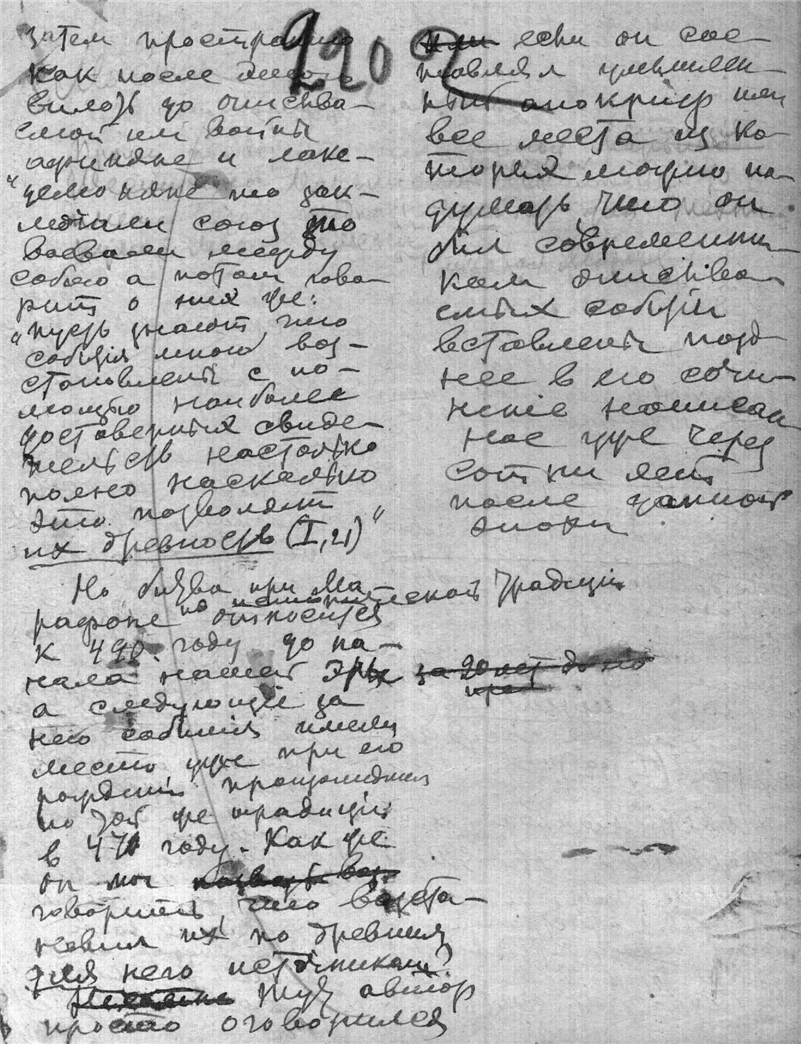 290
затем пространно
как после этого
вилоть до описыва-
емой им войны
афиняне и лаке-
"демоняне то зак-
лючали союз то
воевали между
собою а потом гово-
рит о них же:
"пусть знают, что
события мною воз-
становлены с по-
мощью наиболее
достоверных свиде-
тельств настолько
полно насколько
это позволяет
их древность (I, 21)"
Но битва при Ма-
рафоне по исторической традиции
относится
к 490 году до на-
чала нашей Эры за 20 лет до
а следующие за
нею события имели
место уже при его
рождении произошедшем
по той же традиции
в 471 году. Как же
он мог
говорить что возста-
новил их по древним
для него источникам?
Тут автор
просто оговорился
или если он сос-
тавлял умышлен-
ный апокриф или
все места из ко-
торых можно по-
думать, что он
был современни-
ком описыва-
емых событий
вставлены позд-
нее в его сочи-
нение написан-
ное уже через
сотни лет
после данной
эпохи